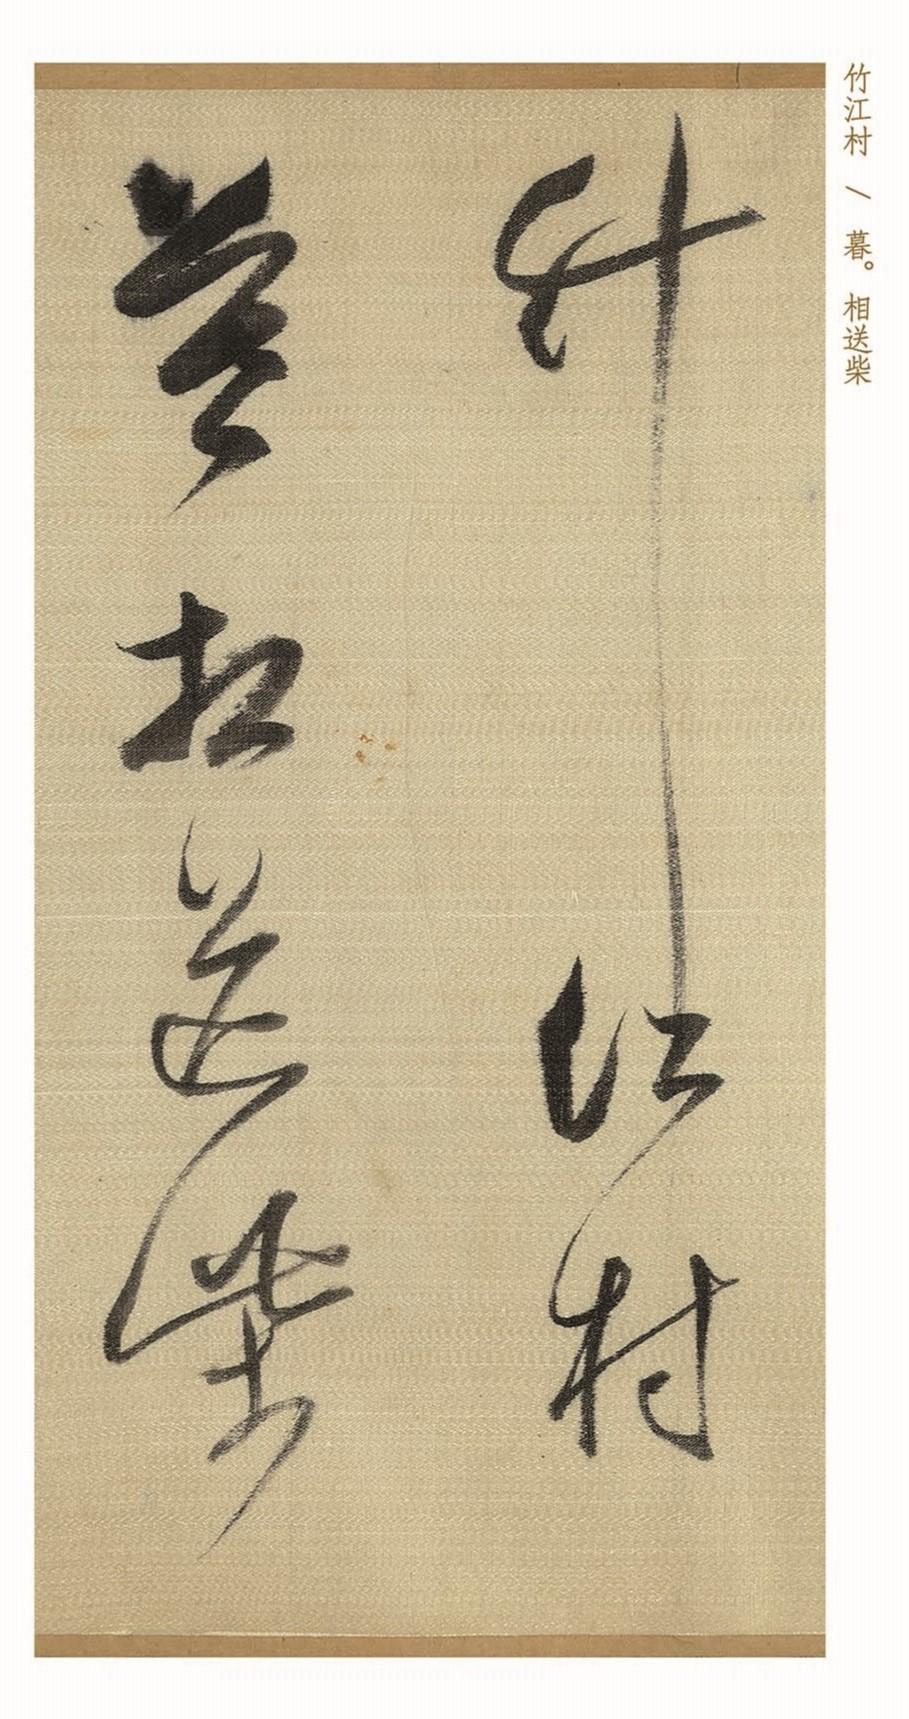 竹江村 / 暮。相送柴
竹江村
暮相送柴